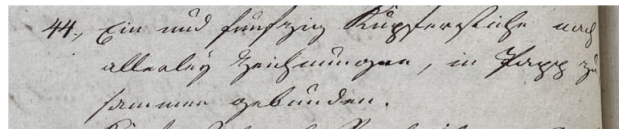 44., Ein und funfzig Kupferstiche nach
allerley Zeichnungen, in Papp zu
sammen gebunden.